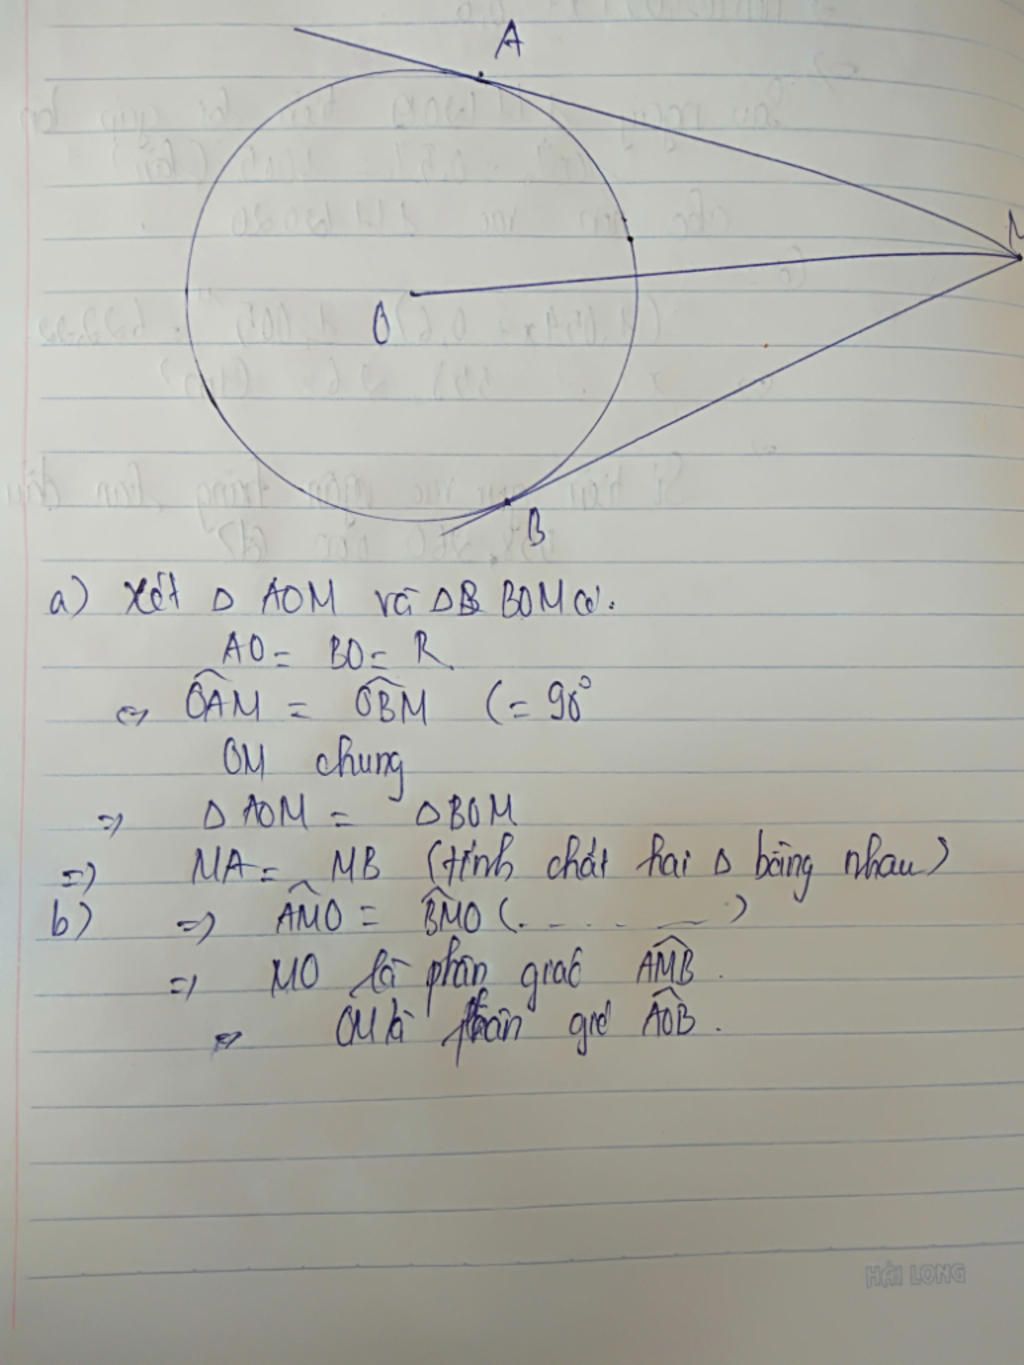 A
M
O
B
a) Xét Δ AOM và Δ BOM có:
AO = BO = R
=> OAM = OBM (= 90°
OM chung
=> Δ AOM = Δ BOM
=> MA = MB (tính chất hai Δ bằng nhau)
b) => AMO = BMO (. - - . . - )
=> MO là phân giác AMB.
=> OM là phân giá AOB.
HẢI LONG